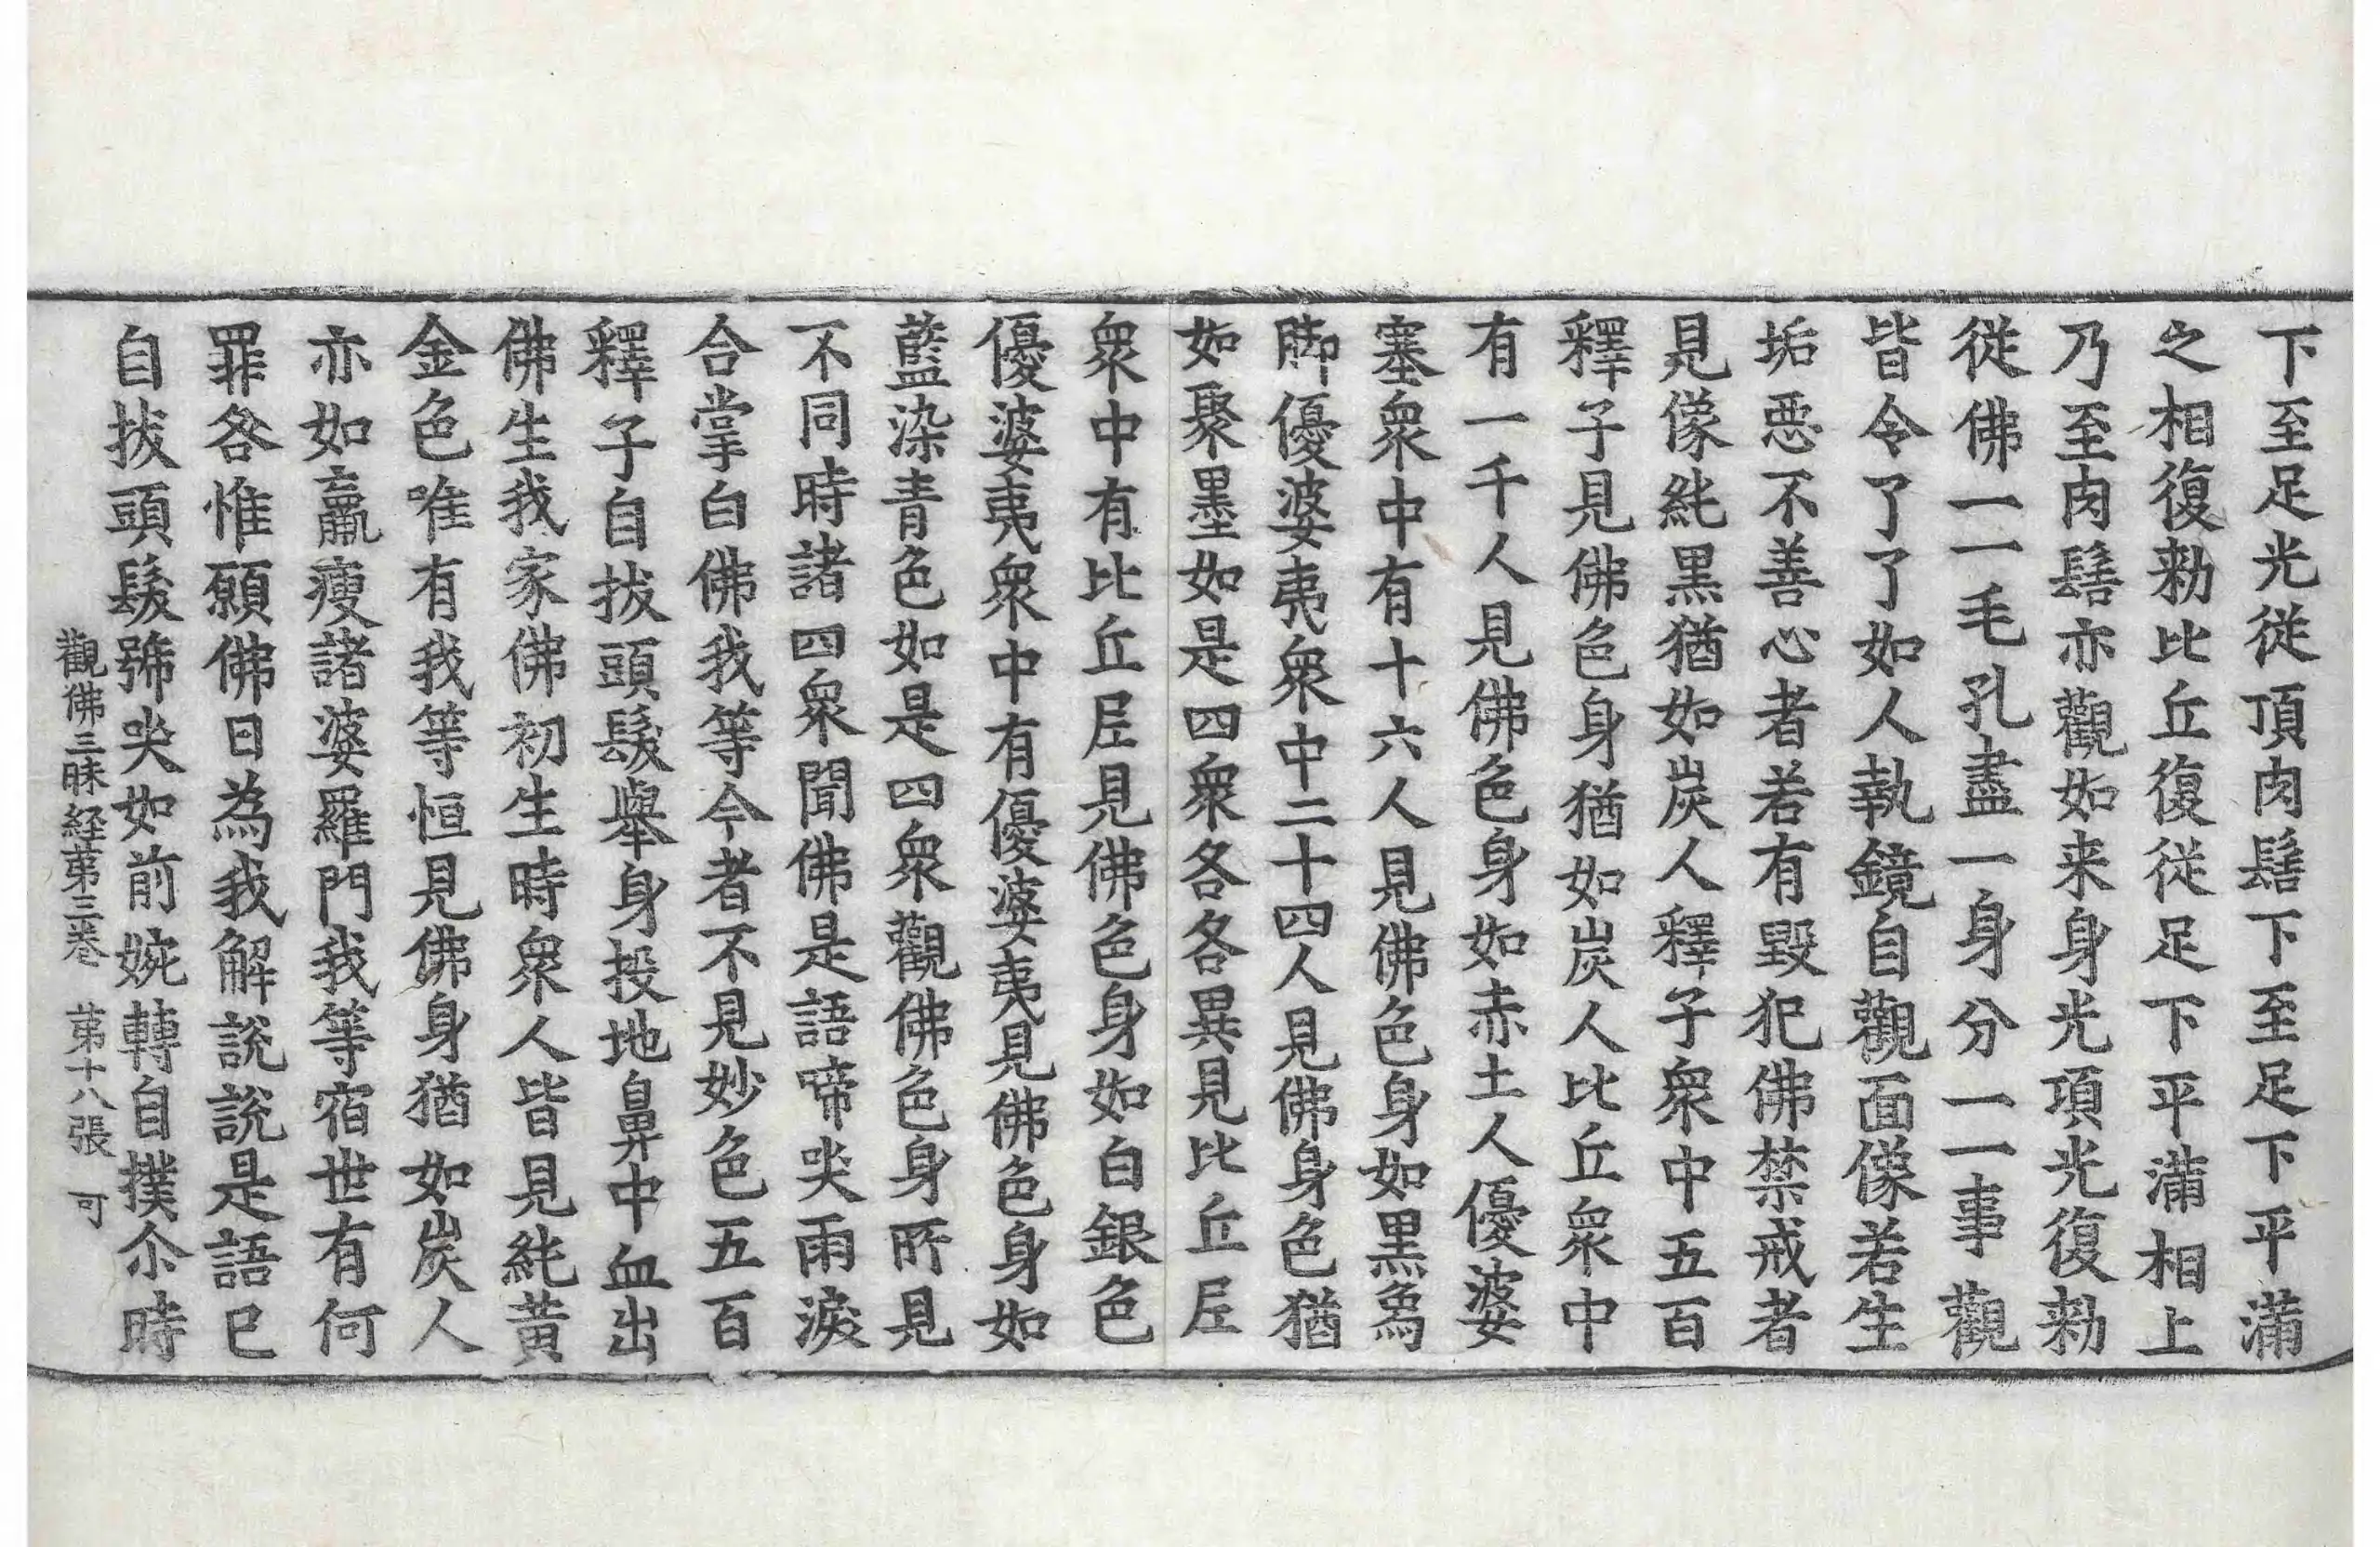 下至足光從頂肉髻下至足下平滿
之相復勑比丘復從足下平滿相上
乃至肉髻亦觀如来身光項光復勑
從佛一一毛孔盡一身分一一事觀
皆令了了如人執鏡自觀面像若生
垢惡不善心者若有毀犯佛禁戒者
見像純黑猶如炭人釋子衆中五百
釋子見佛色身猶如炭人比丘衆中
有一千人見佛色身如赤土人優婆
塞衆中有十六人見佛色身如黑象
脚優婆夷衆中二十四人見佛身色猶
如聚墨如是四衆各各異見比丘尼
衆中有比丘尼見佛色身如白銀色
優婆夷衆中有優婆夷見佛色身如
藍染青色如是四衆觀佛色身所見
不同時諸四衆聞佛是語啼哭雨淚
合掌白佛我等今者不見妙色五百
釋子自拔頭髮舉身投地鼻中血出
佛生我家佛初生時衆人皆見純黃
金色唯有我等恒見佛身猶如炭人
亦如羸瘦諸婆羅門我等宿世有何
罪咎惟願佛日為我解說說是語已
自拔頭髮號哭如前婉轉自撲尒時
觀佛三昧経苐三巻 苐十八張 可